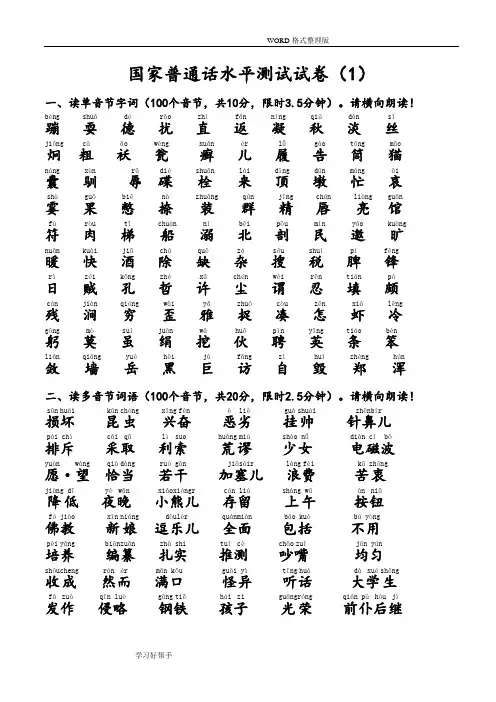 WORD 格式整理版
国家普通话水平测试试卷（1）
一、读单音节字词（100个音节，共10分，限时3.5分钟）。请横向朗读！
bèng shuǎ dé rǎo zhí fǎn níng qiū dàn sī
蹦 耍 德 扰 直 返 凝 秋 淡 丝
jiǒng cū ǎo wèng xuǎn ér lǚ gào tǒng māo
炯 粗 袄 瓮 癣 儿 履 告 筒 猫
náng xùn rǔ dié shuān lái dǐng dūn máng āi
囊 驯 辱 碟 栓 来 顶 墩 忙 哀
shà guǒ biē nà zhuāng qún jīng chún liàng guǎn
霎 果 憋 捺 装 群 精 唇 亮 馆
fú ròu tī chuán nì běi pōu mín yāo kuàng
符 肉 梯 船 溺 北 剖 民 邀 旷
nuǎn kuài jiǔ chú quē zá sōu shuì pí fēng
暖 快 酒 除 缺 杂 搜 税 脾 锋
rì zéi kǒng zhé xǔ chén wèi rěn tián pō
日 贼 孔 哲 许 尘 谓 忍 填 颇
cán jiàn qióng wāi yǎ zhuō còu zěn xiā lěng
残 涧 穷 歪 雅 捉 凑 怎 虾 冷
gōng mò suī juàn wā huǒ pìn yīng tiáo bèn
躬 莫 虽 绢 挖 伙 聘 英 条 笨
liǎn qiáng yuè hēi jù fǎng zì huǐ zhèng hún
敛 墙 岳 黑 巨 访 自 毁 郑 浑
二、读多音节词语（100个音节，共20分，限时2.5分钟）。请横向朗读！
sǔn huài kūn chóng xīng fèn è liè guà shuài zhēnbír
损坏 昆虫 兴奋 恶劣 挂帅 针鼻儿
pái chì cǎi qǔ lì suo huāng miù shào nǚ diàn cí bō
排斥 采取 利索 荒谬 少女 电磁波
yuàn wàng qià dàng ruò gān jiāsāir làng fèi kǔ zhōng
愿·望 恰当 若干 加塞儿 浪费 苦衷
jiàng dī yè wǎn xiǎoxióngr cún liú shàng wǔ àn niǔ
降低 夜晚 小熊儿 存留 上午 按钮
fó jiào xīn niáng dòulèr quánmiàn bāo kuò bú yòng
佛教 新娘 逗乐儿 全面 包括 不用
péi yǎng biānzuǎn zhā shi tuī cè chǎo zuǐ jūn yún
培养 编纂 扎实 推测 吵嘴 均匀
shōucheng rán ér mǎn kǒu guài yì tīng huà dà xué shēng
收成 然而 满口 怪异 听话 大学生
fā zuò qīn luè gāng tiě hái zi guāngróng qián pū hòu jì
发作 侵略 钢铁 孩子 光荣 前仆后继
学习好帮手